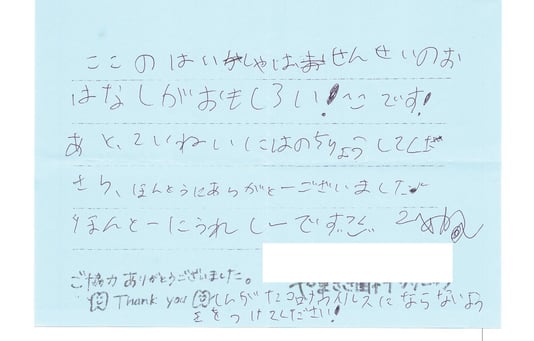 ここのはいしゃはせんせいのお
はなしがおもしろい!ここです!
あと、ていねいにはのちりょうしてくだ
さり、ほんとうにありがとーございました
ほんとーにうれしーです
ご協力ありがとうございました。
Thank you しんがたコロナウイルスにならないよう
きをつけてください!